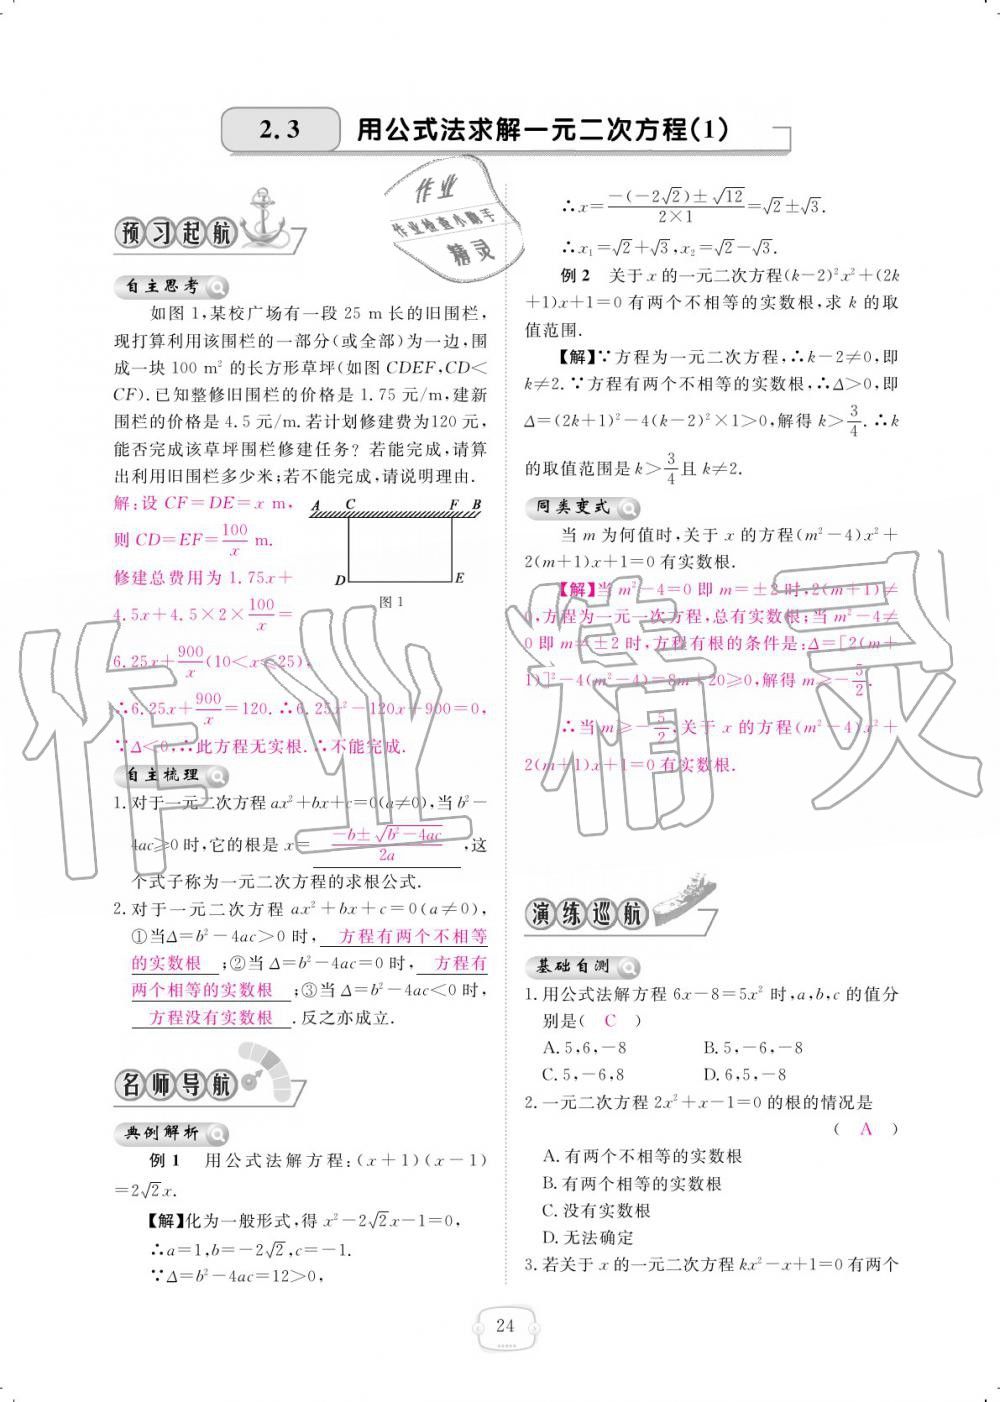 2.3 用公式法求解一元二次方程(1)
预习起航
自主思考
如图 1,某校广场有一段 25 m 长的旧围栏,
现打算利用该围栏的一部分(或全部)为一边,围
成一块 100 m² 的长方形草坪(如图 CDEF,CD<
CF).已知整修旧围栏的价格是 1.75 元/m,建新
围栏的价格是 4.5 元/m.若计划修建费为120 元,
能否完成该草坪围栏修建任务? 若能完成,请算
出利用旧围栏多少米;若不能完成,请说明理由.
解:设 CF=DE=x m,
则 CD=EF=100/x m.
修建总费用为 1.75x+
4.5x+4.5×2×100/x=
6.25x+900/x(10<x≤25),
∴6.25x+900/x=120.∴6.25x²-120x+900=0,
∵Δ<0,∴此方程无实根.∴不能完成.
A C F B
D E
图 1
自主梳理
1.对于一元二次方程 ax²+bx+c=0(a≠0),当 b²-
4ac≥0 时,它的根是 x= (-b±√(b²-4ac))/2a ,这
个式子称为一元二次方程的求根公式.
2.对于一元二次方程 ax²+bx+c=0(a≠0),
①当Δ=b²-4ac>0 时, 方程有两个不相等
的实数根 ;②当 Δ=b²-4ac=0 时, 方程有
两个相等的实数根 ;③当 Δ=b²-4ac<0 时,
方程没有实数根 .反之亦成立.
名师导航
典例解析
例 1 用公式法解方程:(x+1)(x-1)
=2√2x.
【解】化为一般形式,得 x²-2√2x-1=0,
∴a=1,b=-2√2,c=-1.
∵Δ=b²-4ac=12>0,
∴x=(-(-2√2)±√12)/(2×1)=√2±√3.
∴x₁=√2+√3,x₂=√2-√3.
例 2 关于 x 的一元二次方程(k-2)²x²+(2k
+1)x+1=0 有两个不相等的实数根,求 k 的取
值范围.
【解】∵方程为一元二次方程,∴k-2≠0,即
k≠2.∵方程有两个不相等的实数根,∴Δ>0,即
Δ=(2k+1)²-4(k-2)²×1>0,解得 k>3/4.∴k
的取值范围是 k>3/4且 k≠2.
同类变式
当 m 为何值时,关于 x 的方程(m²-4)x²+
2(m+1)x+1=0 有实数根.
【解】当 m²-4=0 即 m=±2 时,2(m+1)≠
0,方程为一元一次方程,总有实数根;当 m²-4≠
0 即 m≠±2 时,方程有根的条件是:Δ=[2(m+
1)]²-4(m²-4)=8m+20≥0,解得 m≥-5/2.
∴当 m≥-5/2,关于 x 的方程(m²-4)x²+
2(m+1)x+1=0 有实数根.
演练巡航
基础自测
1.用公式法解方程 6x-8=5x² 时,a,b,c 的值分
别是( C )
A.5,6,-8 B.5,-6,-8
C.5,-6,8 D.6,5,-8
2.一元二次方程 2x²+x-1=0 的根的情况是
( A )
A.有两个不相等的实数根
B.有两个相等的实数根
C.没有实数根
D.无法确定
3.若关于 x 的一元二次方程 kx²-x+1=0 有两个
24
作业
作业检查小助手
精灵
作业精灵